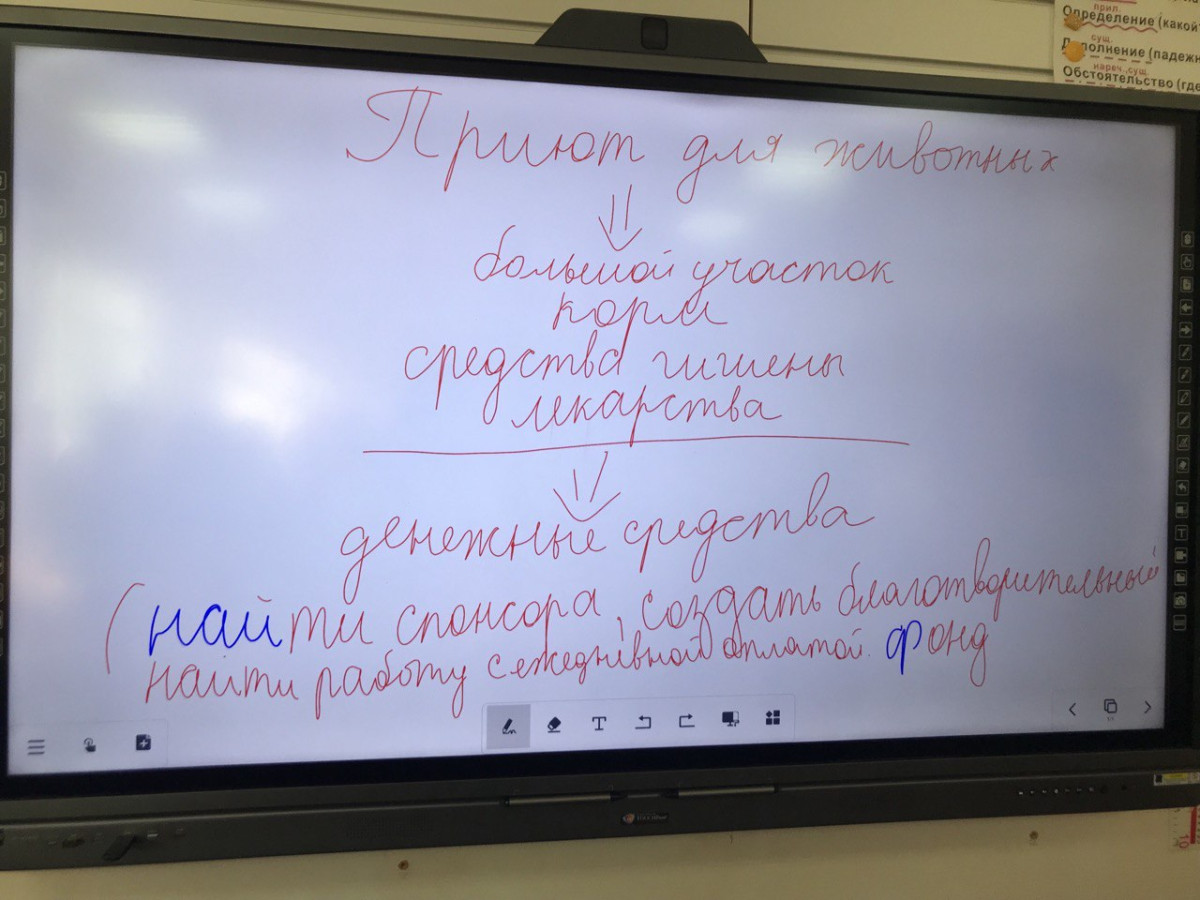 прил.
Определение (какой
сущ.
Дополнение (падежн
нареч., сущ.
Обстоятельство (где
Приют для животных
большой участок
корм
средства гигиены
лекарства
денежные средства
(найти спонсора, создать благотворительный
найти работу с ежедневной оплатой. фонд